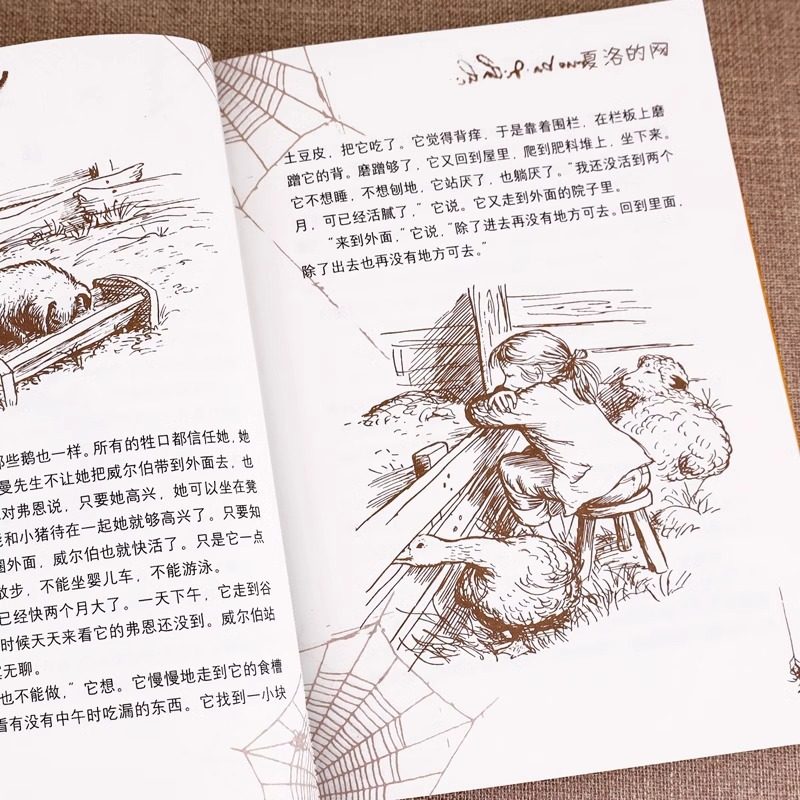 那些鹅也一样。所有的牲口都信任她，她
曼先生不让她把威尔伯带到外面去，也
对弗恩说，只要她高兴，她可以坐在凳
和小猪待在一起她就够高兴了。只要知
圈外面，威尔伯也就快活了。只是它一点
散步，不能坐婴儿车，不能游泳。
已经快两个月大了。一天下午，它走到谷
时候天天来看它的弗恩还没到。威尔伯站
无聊。
也不能做，”它想。它慢慢地走到它的食槽
看有没有中午时吃漏的东西。它找到一小块
夏洛的网
土豆皮，把它吃了。它觉得背痒，于是靠着围栏，在栏板上磨
蹭它的背。磨蹭够了，它又回到屋里，爬到肥料堆上，坐下来。
它不想睡，不想刨地，它站厌了，也躺厌了。“我还没活到两个
月，可已经活腻了，”它说。它又走到外面的院子里。
“来到外面，”它说，“除了进去再没有地方可去。回到里面，
除了出去也再没有地方可去。”